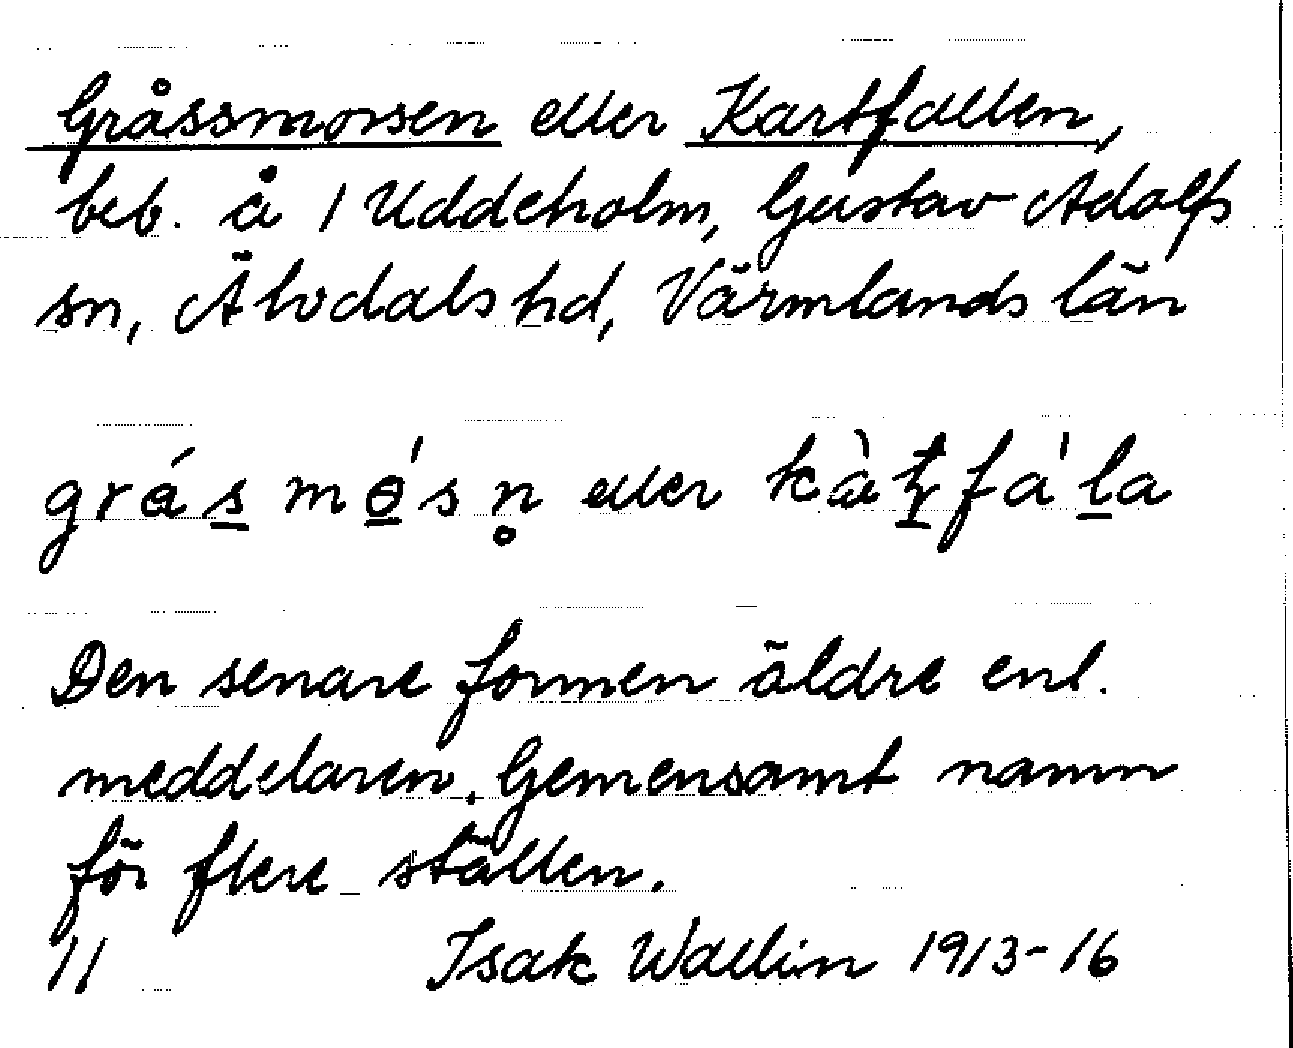 Gråssmorsen eller Kartfallen,
beb. å 1 Uddeholm, Gustav Adolfs
sn, Älvdals hd, Värmlands län
grás mɵ́s n̥ eller kàt fá'la
Den senare formen äldre enl.
meddelaren. Gemensamt namn
för flere ställen.
11 Isak Wallin 1913-16